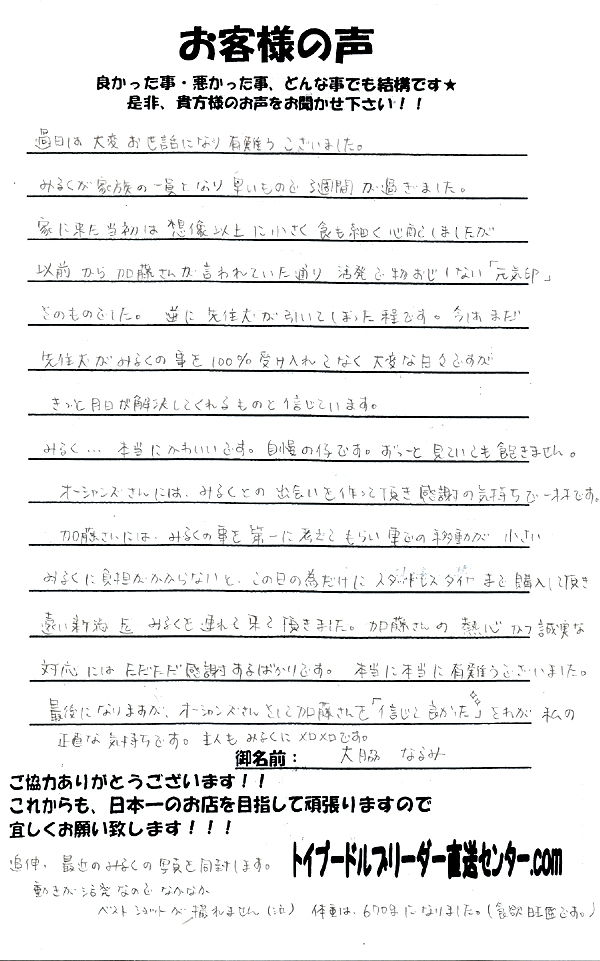 お客様の声
良かった事・悪かった事、どんな事でも結構です★
是非、貴方様のお声をお聞かせ下さい！！
過日は大変お世話になり有難うございました。
みるくが家族の一員となり早いもので3週間が過ぎました。
家に来た当初は想像以上に小さく食も細く心配しましたが
以前から加藤さんが言われていた通り活発で物おじしない「元気印」
そのものでした。逆に先住犬が引いてしまった程です。今はまだ
先住犬がみるくの事を100%受け入れてなく大変な日々ですが
きっと月日が解決してくれるものと信じています。
みるく… 本当にかわいいです。自慢の仔です。ずーっと見ていても飽きません。
オーシャンズさんには、みるくとの出会いを作って頂き感謝の気持ちで一杯です。
加藤さんには、みるくの事を第一に考えてもらい車での移動が小さい
みるくに負担がかからないと、この日の為だけにスタッドレスタイヤまで購入して頂き
遠い新潟迄みるくを連れて来て頂きました。加藤さんの熱心かつ誠実な
対応にはただただ感謝するばかりです。本当に本当に有難うございました。
最後になりますが、オーシャンズさんそして加藤さんを「信じて良かった」それが私の
正直な気持ちです。主人もみるくにメロメロです。
御名前： 大脇 なるみ
ご協力ありがとうございます！！
これからも、日本一のお店を目指して頑張りますので
宜しくお願い致します！！！
トイプードルブリーダー直送センター.com
追伸・最近のみるくの写真を同封します。
動きが活発なのでなかなか
ベストショットが撮れません(泣) 体重は、670gになりました。(食欲旺盛です。)